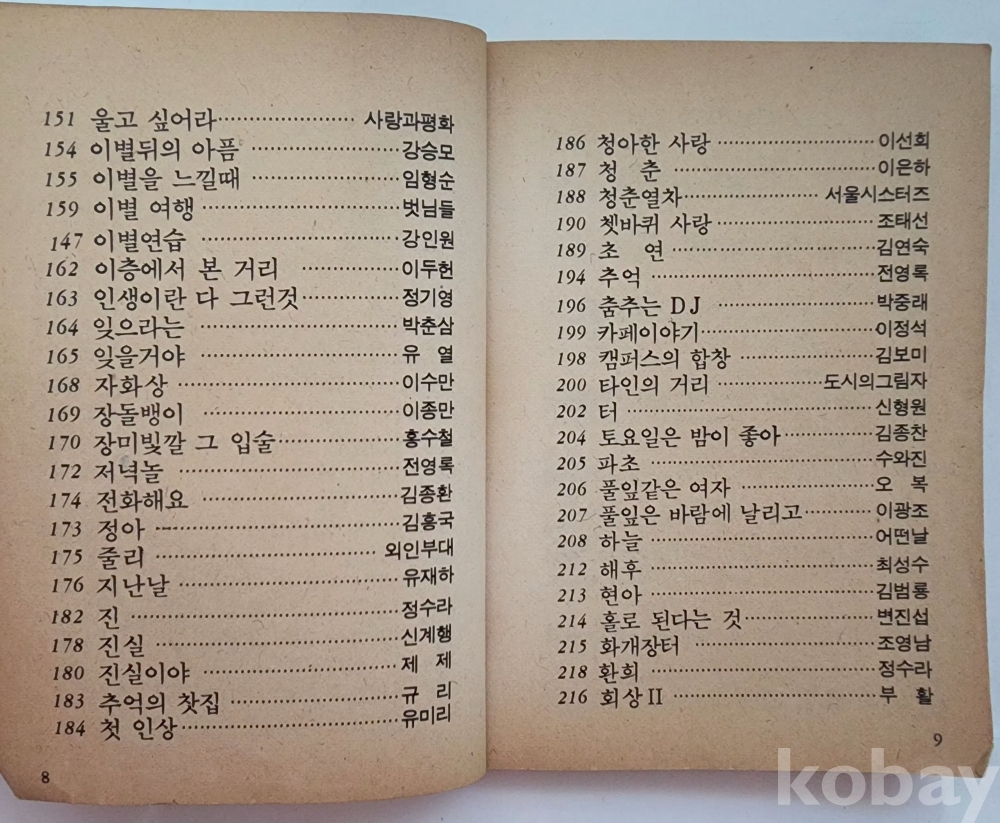 151 울고 싶어라 ………… 사랑과평화
154 이별뒤의 아픔 ………… 강승모
155 이별을 느낄때 ………… 임형순
159 이별 여행 ………… 벗님들
147 이별연습 ………… 강인원
162 이층에서 본 거리 ………… 이두헌
163 인생이란 다 그런것 ………… 정기영
164 잊으라는 ………… 박춘삼
165 잊을거야 ………… 유 열
168 자화상 ………… 이수만
169 장돌뱅이 ………… 이종만
170 장미빛깔 그 입술 ………… 홍수철
172 저녁놀 ………… 전영록
174 전화해요 ………… 김종환
173 정아 ………… 김흥국
175 줄리 ………… 외인부대
176 지난날 ………… 유재하
182 진 ………… 정수라
178 진실 ………… 신계행
180 진실이야 ………… 제 제
183 추억의 찻집 ………… 규 리
184 첫 인상 ………… 유미리
8
186 청아한 사랑 ………… 이선희
187 청 춘 ………… 이은하
188 청춘열차 ………… 서울시스터즈
190 쳇바퀴 사랑 ………… 조태선
189 초 연 ………… 김연숙
194 추억 ………… 전영록
196 춤추는 DJ ………… 박중래
199 카페이야기 ………… 이정석
198 캠퍼스의 합창 ………… 김보미
200 타인의 거리 ………… 도시의그림자
202 터 ………… 신형원
204 토요일은 밤이 좋아 ………… 김종찬
205 파초 ………… 수와진
206 풀잎같은 여자 ………… 오 복
207 풀잎은 바람에 날리고 ………… 이광조
208 하늘 ………… 어떤날
212 해후 ………… 최성수
213 현아 ………… 김범룡
214 홀로 된다는 것 ………… 변진섭
215 화개장터 ………… 조영남
218 환희 ………… 정수라
216 회상Ⅱ ………… 부 활
9
kobay